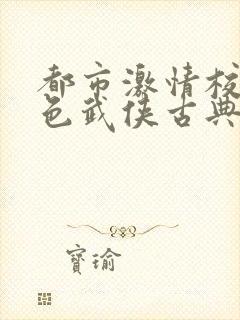 都市激情校
色武侠古典
寶瑜